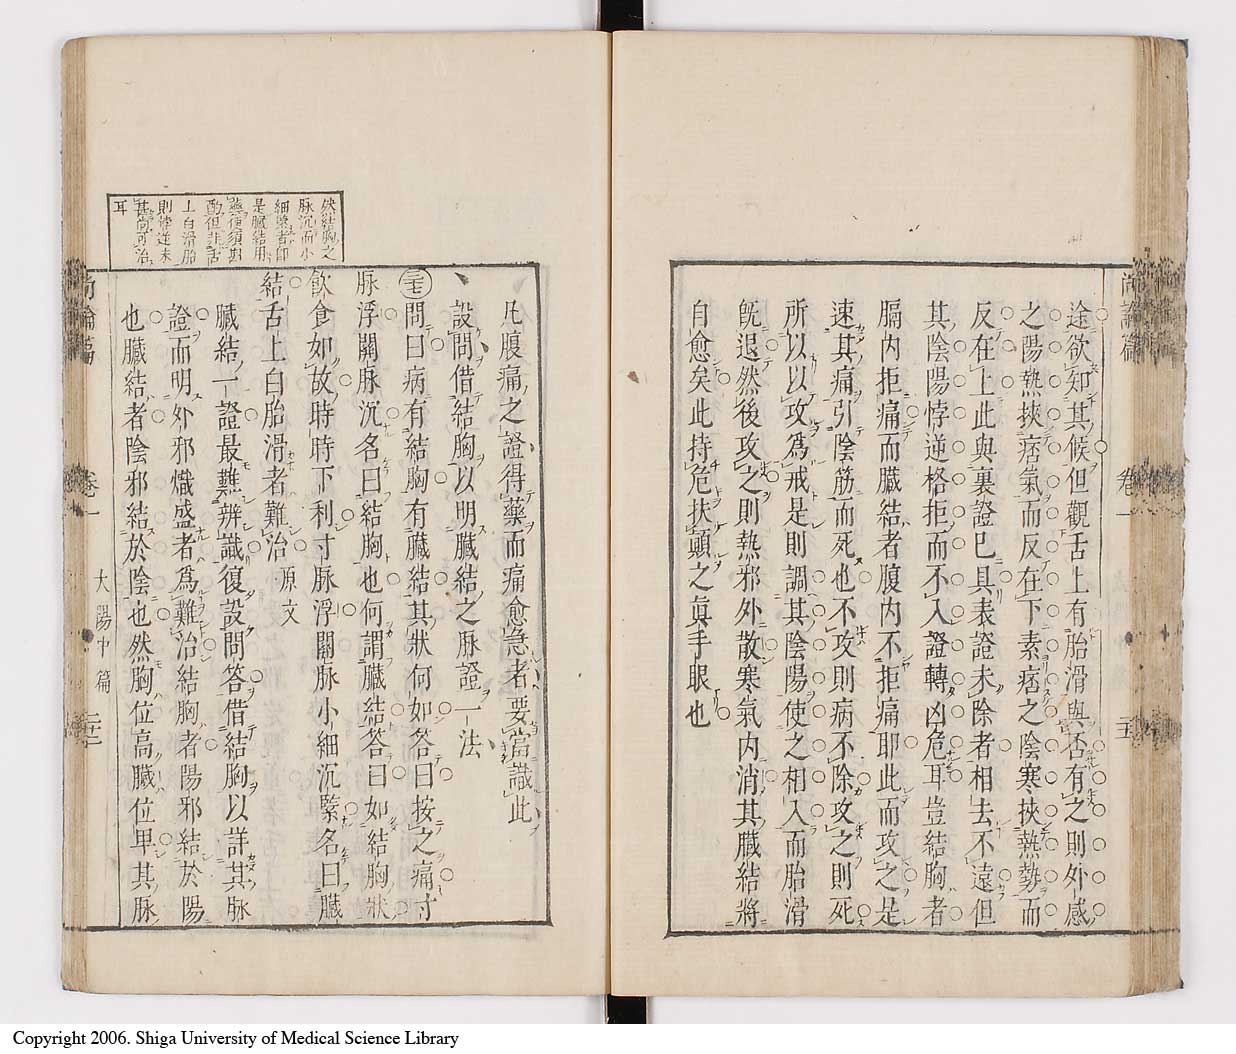 途欲知其候但觀舌上有胎滑與否有之則外感
之陽熱挾痞氣而反在下素痞之陰寒挾熱勢而
反在上此與裏證已具表證未除者相去不遠但
其陰陽悖逆格拒而不入證轉凶危耳豈結胸者
膈内拒痛而臓結者腹内不拒痛耶此而攻之是
速其痛引陰筋而死也不攻則病不除攻之則死
所以以攻爲戒是則調其陰陽使之相入而胎滑
既退然後攻之則熱邪外散寒氣内消其臓結將
自愈矣此持危扶顚之眞手眼也
尚論篇 卷一
凡腹痛之證得藥而痛愈急者要當識此
設問借結胸以明臓結之脉證一法
問曰病有結胸有臓結其狀何如答曰按之痛寸
脉浮關脉沉名曰結胸也何謂臓結答曰如結胸狀
飲食如故時時下利寸脉浮關脉小細沉緊名曰臓
結舌上白胎滑者難治 原文
臓結一證最難辨識復設問答借結胸以詳其脉
證而明外邪熾盛者爲難治結胸者陽邪結於陽
也臓結者陰邪結於陰也然胸位高臓位卑其脉
然結胸之
脉沉而小
細緊者卽
是臓結用
藥便須斟
酌但非舌
上白滑胎
則悖逆未
甚尚可治
耳
尚論篇 卷一 太陽中篇